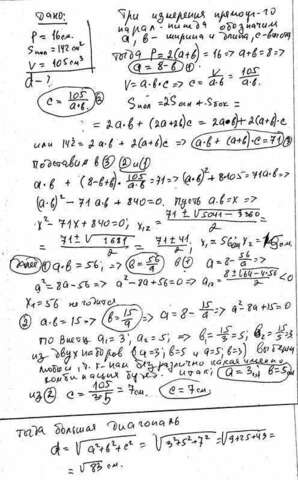 Дано:
P = 16 см.
Sпол = 142 см²
V = 105 см³
d - ?
c = 105/a·b. ②
Три измерения прямоуг-го
парал-пипеда обозначим
a, b - ширина и длина, c - высота
тогда P = 2(a+b) = 16 => a+b = 8 =>
a = 8-b ①
V = a·b·c => c = V/a·b = 105/a·b.
Sпол = 2Sосн + Sбок =
= 2a·b + (2a+2b)c = 2ab + 2(a+b)c
или 142 = 2a·b + 2(a+b)c => a·b + (a+b)·c = 71 ③
подставив в ③ ② и ①
a·b + (8-b+b)·105/a·b = 71 => (a·b)² + 8·105 = 71a·b =>
(a·b)² - 71a·b + 840 = 0. Пусть a·b = x =>
x² - 71x + 840 = 0; x₁,₂ = 71 ± √5041 - 3360 / 2 =
= 71 ± √1681 / 2 = 71 ± 41 / 2. x₁ = 56; x₂ = 15
далее ① a·b = 56; => b = 56/a в ① a = 8 - 56/a
a² = 8a - 56 => a² - 8a + 56 = 0 => a₁,₂ = 8 ± √64 - 4·56 / 2 < 0
x₁ = 56 не годится
② a·b = 15 => b = 15/a => a = 8 - 15/a => a² - 8a + 15 = 0
по Виета a₁ = 3; a₂ = 5; => b₁ = 15/3 = 5; b₂ = 15/5 = 3
из двух наборов (a=3; b=5 и a=5; b=3) выбираем
любой, т.к. нам безразлично какая
комбинация будет. итак: a = 3см b = 5см
из ② c = 105/3·5 = 7см. c = 7см.
тогда большая диагональ
d = √a²+b²+c² = √3²+5²+7² = √9+25+49 =
= √83 см.